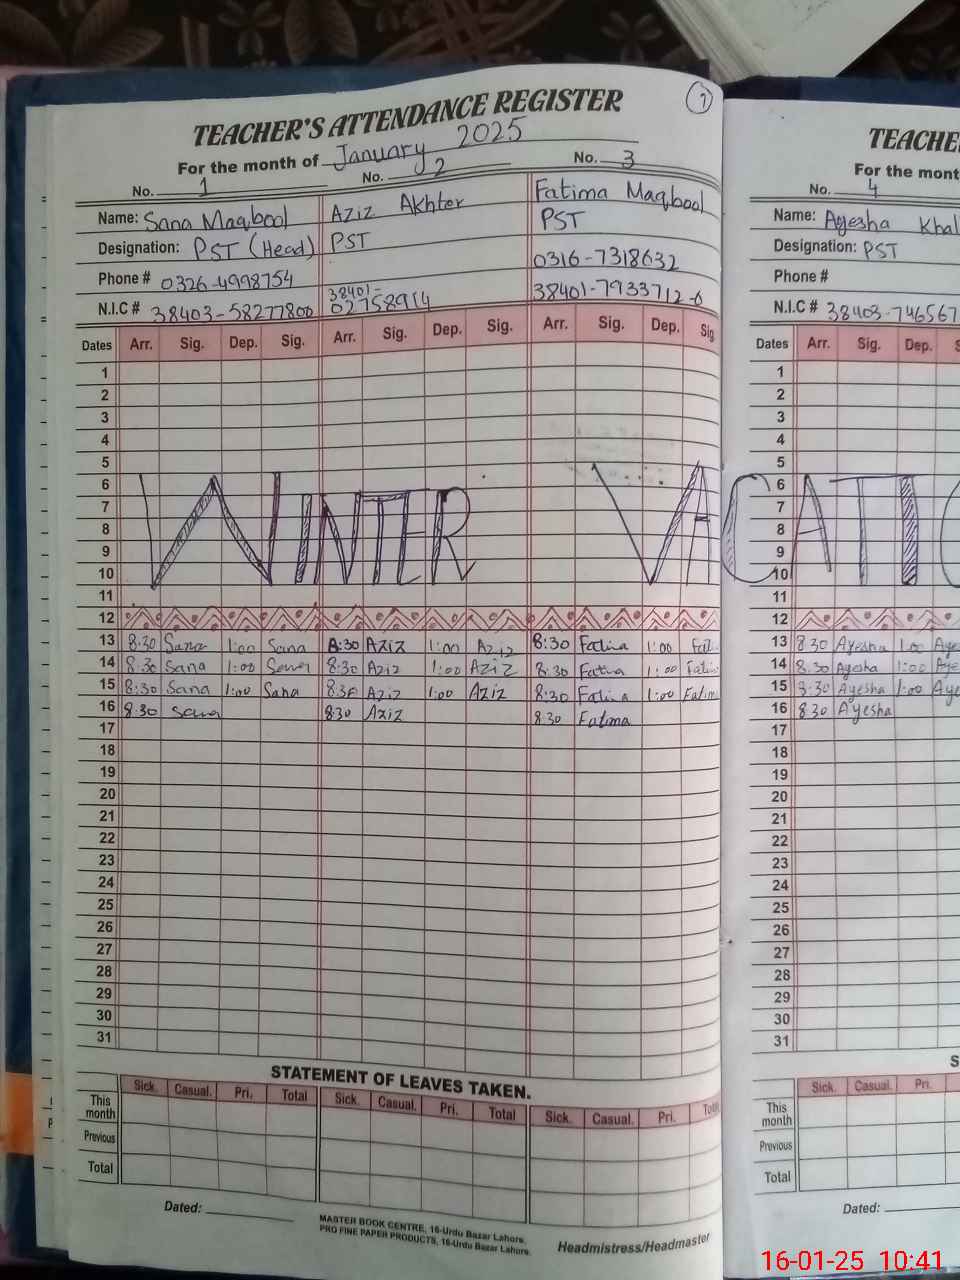 TEACHER'S ATTENDANCE REGISTER
1
For the month of January 2025
No. 1 No. 2 No. 3
Name: Sana Maqbool Aziz Akhter Fatima Maqbool
Designation: PST (Head) PST PST
Phone # 0326-4998754 0316-7318632
N.I.C # 38403-58277800 38401-02758914 38401-7933712-6
Dates Arr. Sig. Dep. Sig. Arr. Sig. Dep. Sig. Arr. Sig. Dep. Sig
1
2
3
4
5
6
7
8
9
10
WINTER VACATIO
11
12
13 8:30 Sana 1:00 Sana 8:30 Aziz 1:00 Aziz 8:30 Fatima 1:00 Fat
14 8:30 Sana 1:00 Sana 8:30 Aziz 1:00 Aziz 8:30 Fatima 1:00 Fati
15 8:30 Sana 1:00 Sana 8:30 Aziz 1:00 Aziz 8:30 Fatima 1:00 Fatim
16 8:30 Sana 8:30 Aziz 8:30 Fatima
17
18
19
20
21
22
23
24
25
26
27
28
29
30
31
STATEMENT OF LEAVES TAKEN.
Sick. Casual. Pri. Total Sick. Casual. Pri. Total Sick. Casual. Pri. Total
This month
Previous
Total
Dated:
MASTER BOOK CENTRE, 16-Urdu Bazar Lahore.
PRO FINE PAPER PRODUCTS, 16-Urdu Bazar Lahore.
Headmistress/Headmaster
TEACHE
For the mont
No. 4
Name: Ayesha Khal
Designation: PST
Phone #
N.I.C # 38403-746567
Dates Arr. Sig. Dep. S
1
2
3
4
5
6
7
8
9
10
11
12
13 8 30 Ayesha 1:00 Aye
14 8:30 Ayesha 1:00 Aye
15 8:30 Ayesha 1:00 Aye
16 8 30 Ayesha
17
18
19
20
21
22
23
24
25
26
27
28
29
30
31
S
Sick. Casual. Pri.
This month
Previous
Total
Dated:
16-01-25 10:41